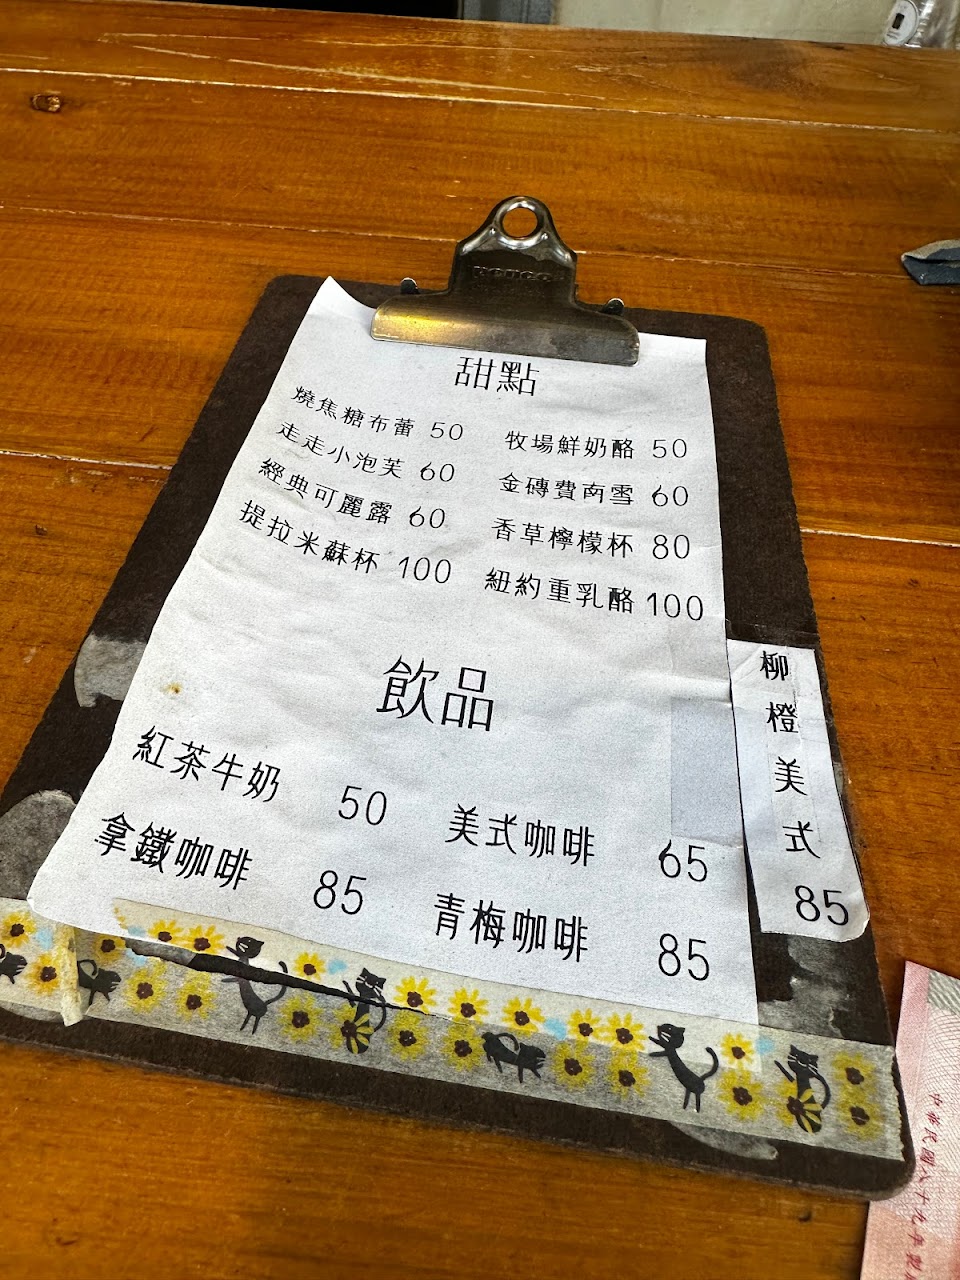 甜點
燒焦糖布蕾 50
走走小泡芙 60
經典可麗露 60
提拉米蘇杯 100
牧場鮮奶酪 50
金磚費南雪 60
香草檸檬杯 80
紐約重乳酪 100
飲品
紅茶牛奶 50
拿鐵咖啡 85
美式咖啡 65
青梅咖啡 85
柳橙美式 85
中華民國八十九年製